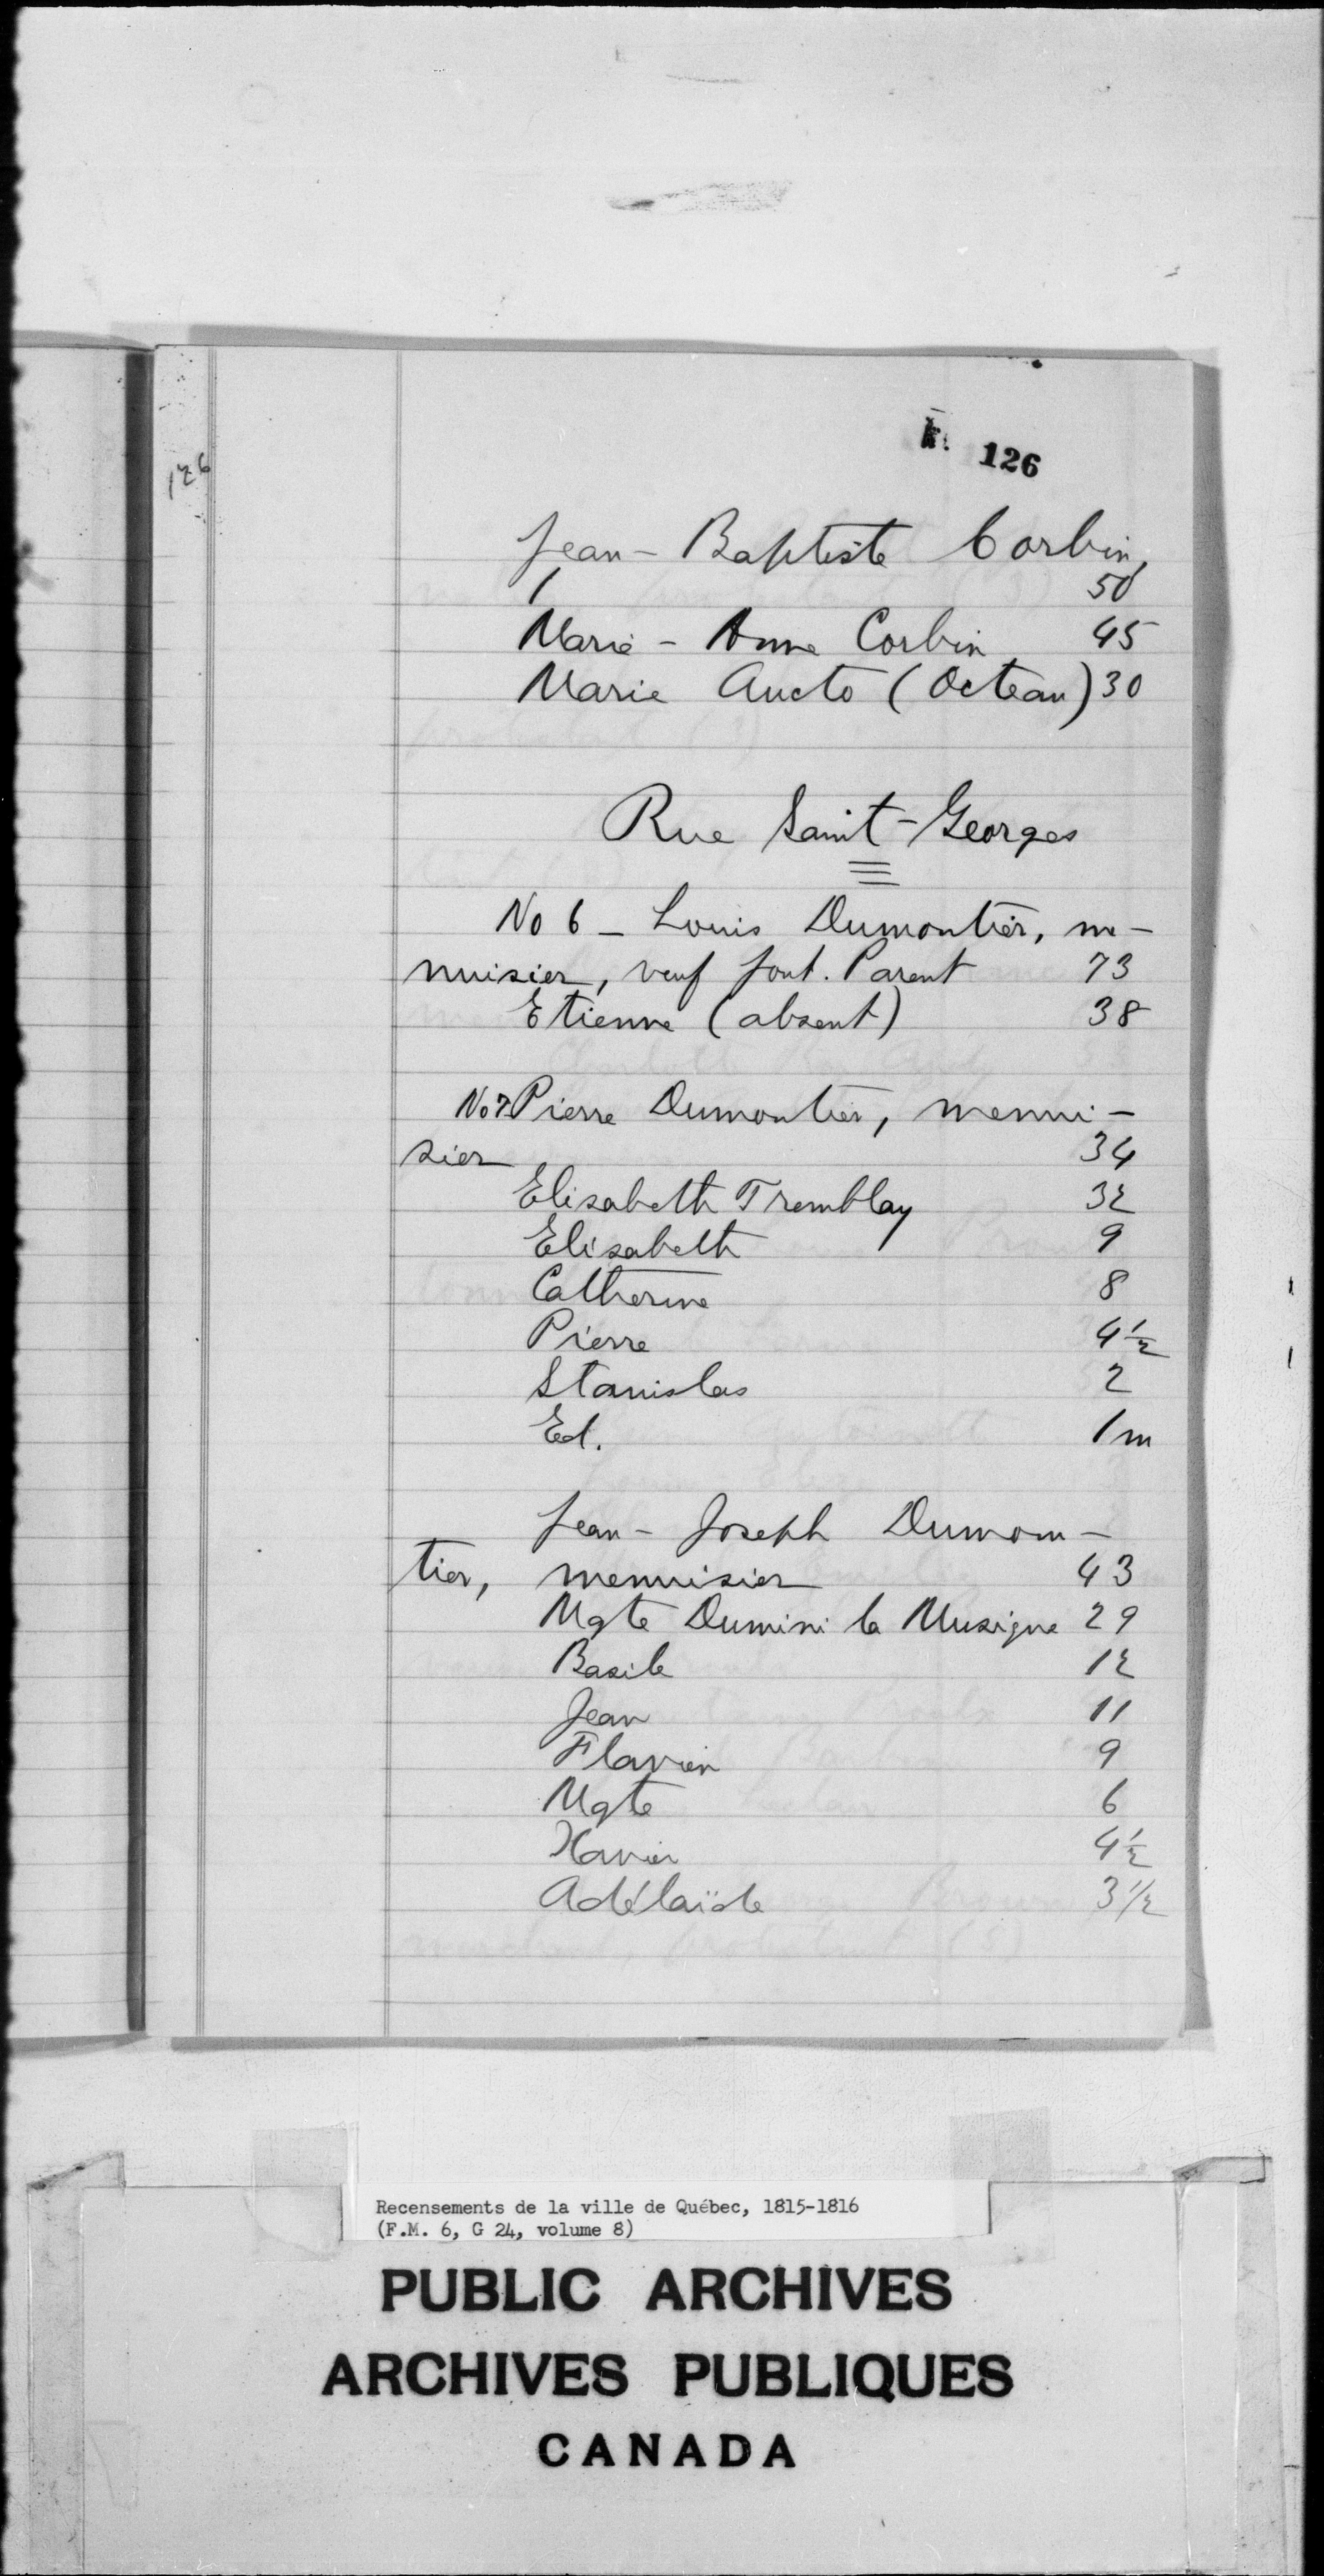 126
126
Jean-Baptiste Corbin,
50
Marie-Anne Corbin 45
Marie Aucto (Octeau) 30
Rue Saint-Georges
No 6 - Louis Dumontier, me-
nuisier, veuf Parent 73
Etienne (absent) 38
No 7. Pierre Dumontier, menui-
sier 34
Elisabeth Tremblay 32
Elisabeth 9
Catherine 8
Pierre 4½
Stanislas 2
Ed. 1m
Jean-Joseph Dumon-
tier, menuisier 43
Mgte Dumini la Musique 29
Basile 12
Jean 11
Flavien 9
Mgte 6
Xavier 4½
Adélaïde 3½
Recensements de la ville de Québec, 1815-1816
(F.M. 6, G 24, volume 8)
PUBLIC ARCHIVES
ARCHIVES PUBLIQUES
CANADA